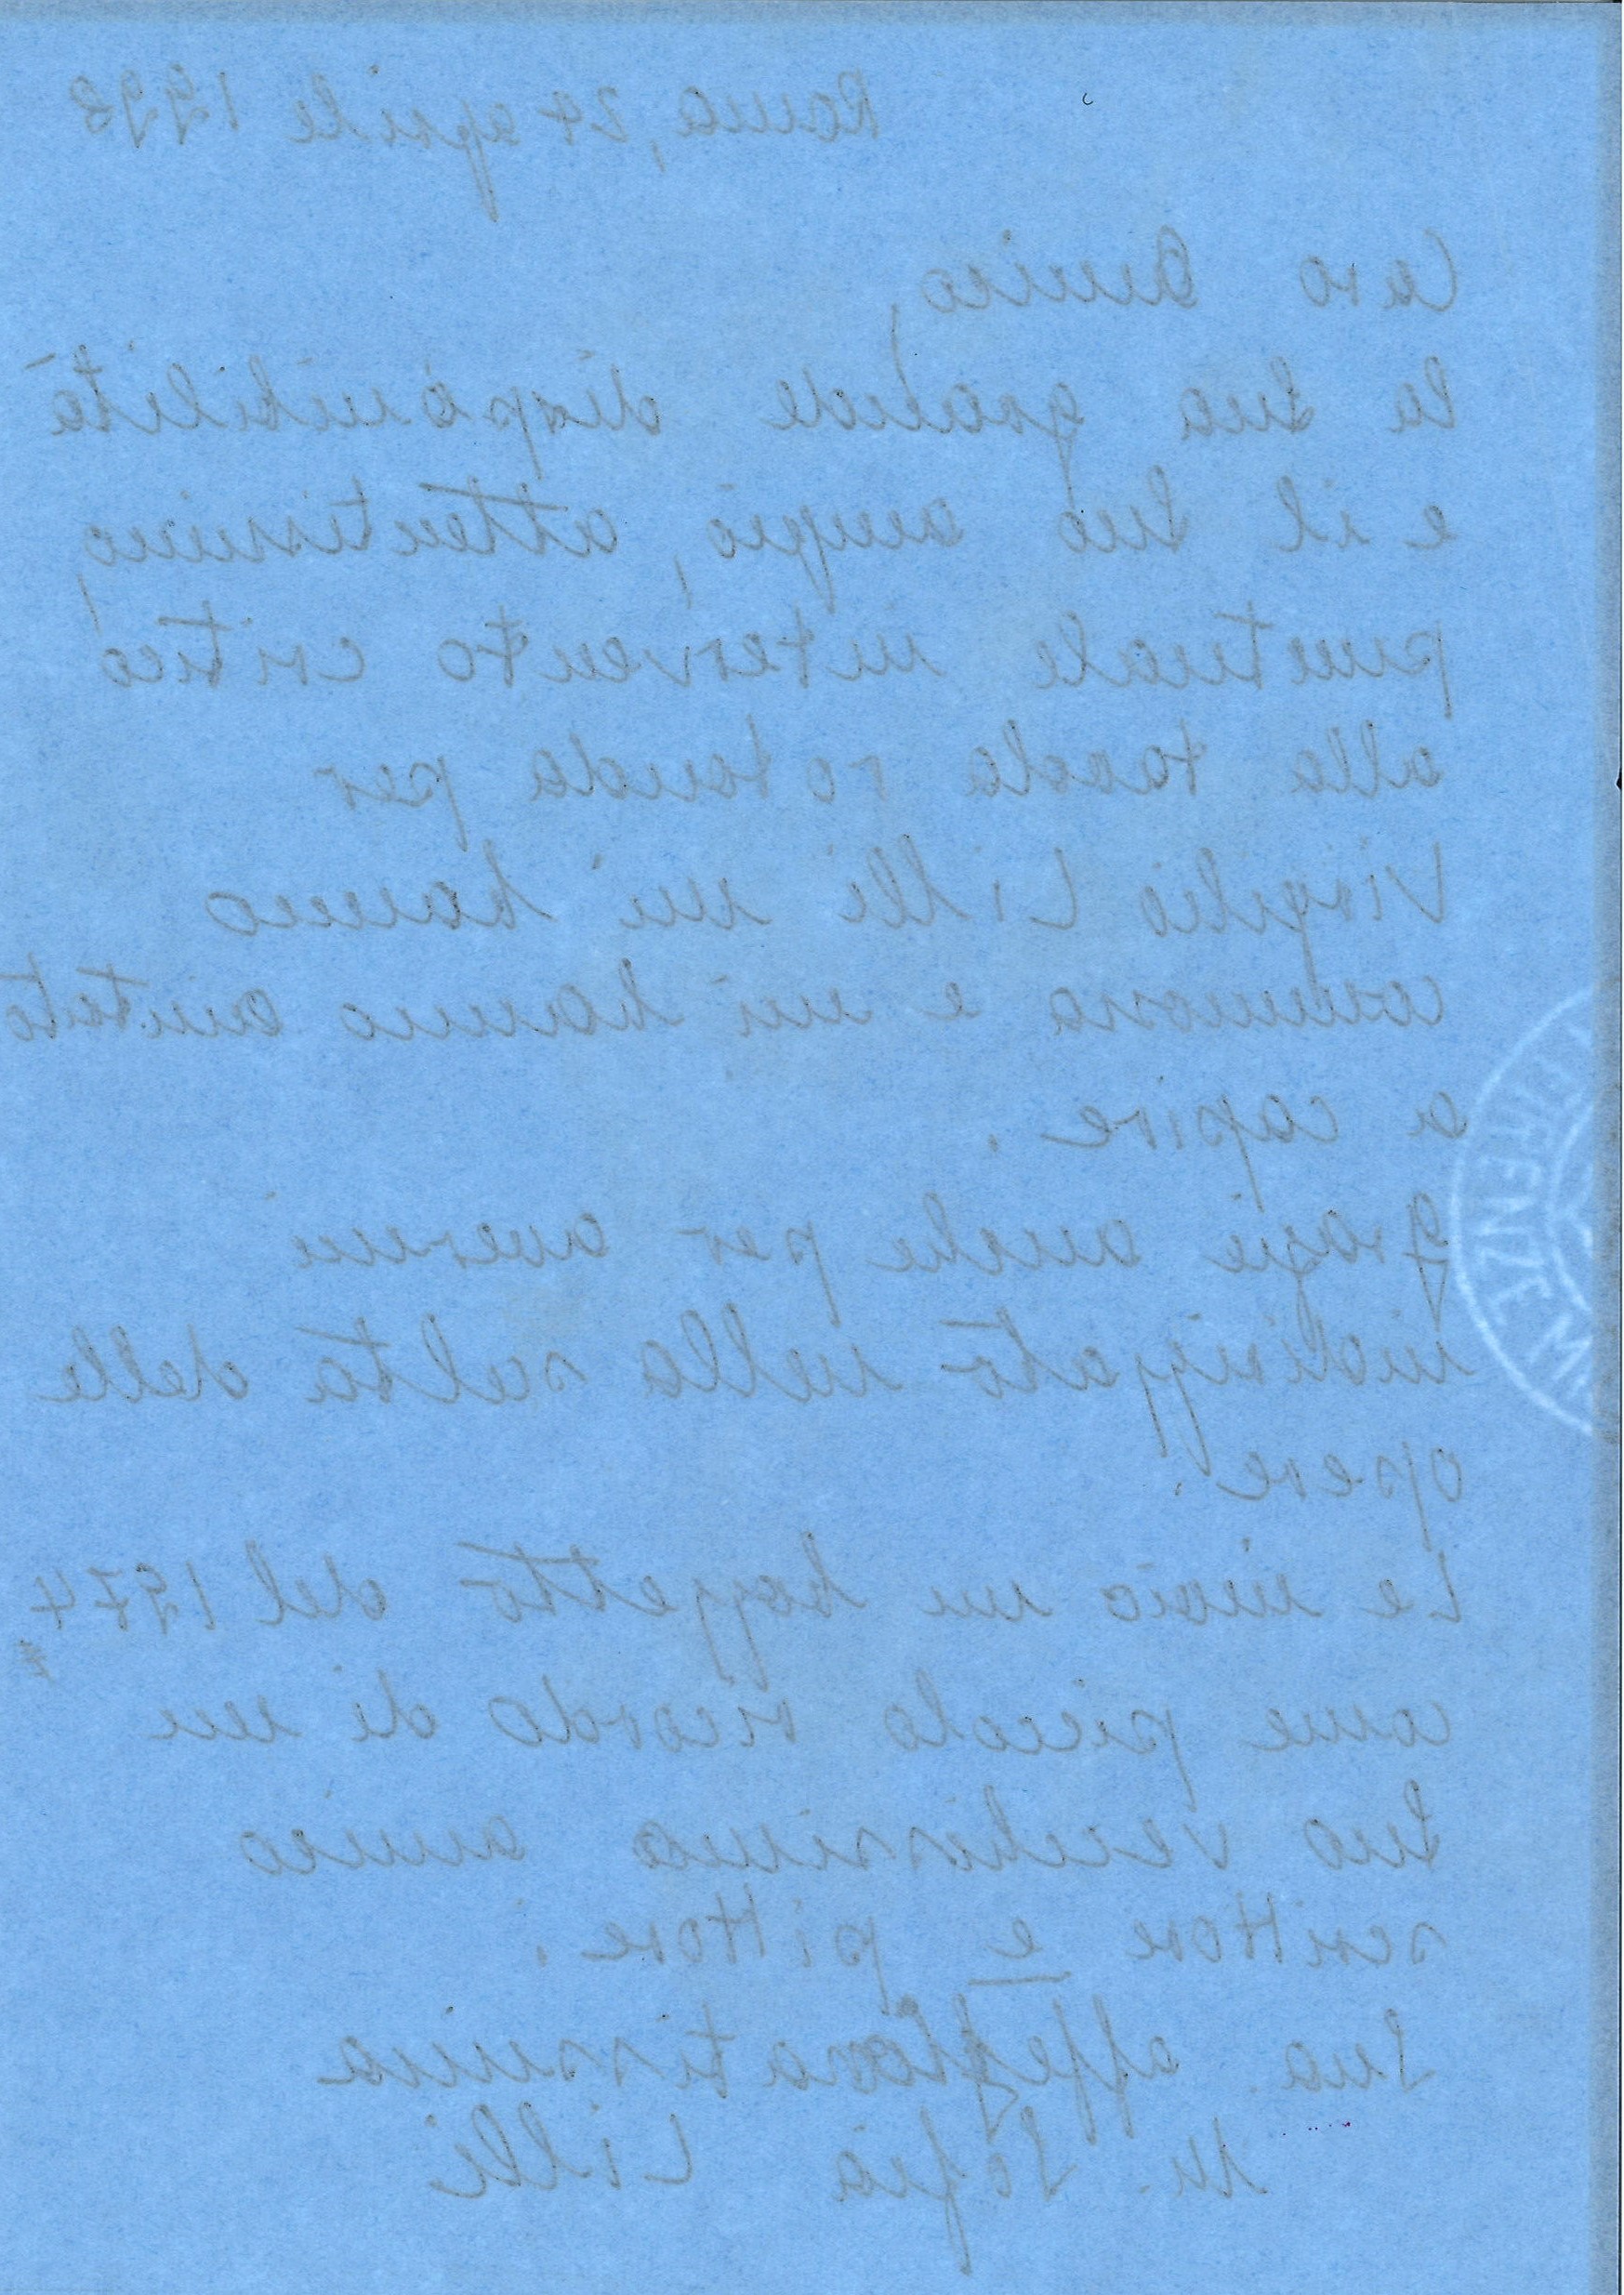 Roma, 24 aprile 1998
Caro Amico,
la Sua grande disponibilità
e il Suo ampio, attentissimo,
puntuale intervento critico
alla tavola rotonda per
Virgilio Lilli mi hanno
commossa e mi hanno aiutato
a capire.
Grazie anche per avermi
indirizzato nella scelta delle
opere.
Le invio un bozzetto del 1974
come piccolo ricordo di un
Suo vecchissimo amico
scrittore e pittore.
Sua affezionatissima
M. Sofia Lilli